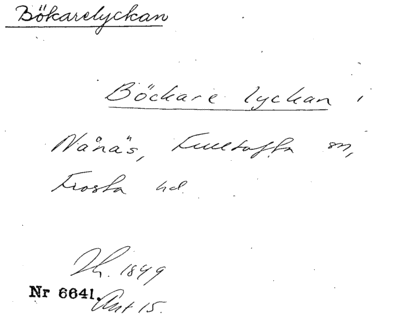 Bökarelyckan
Böckare lyckan i
Nånäs, Fulltofta sn,
Frosta hd
Th. 1849
Nr 6641. Ant 15.